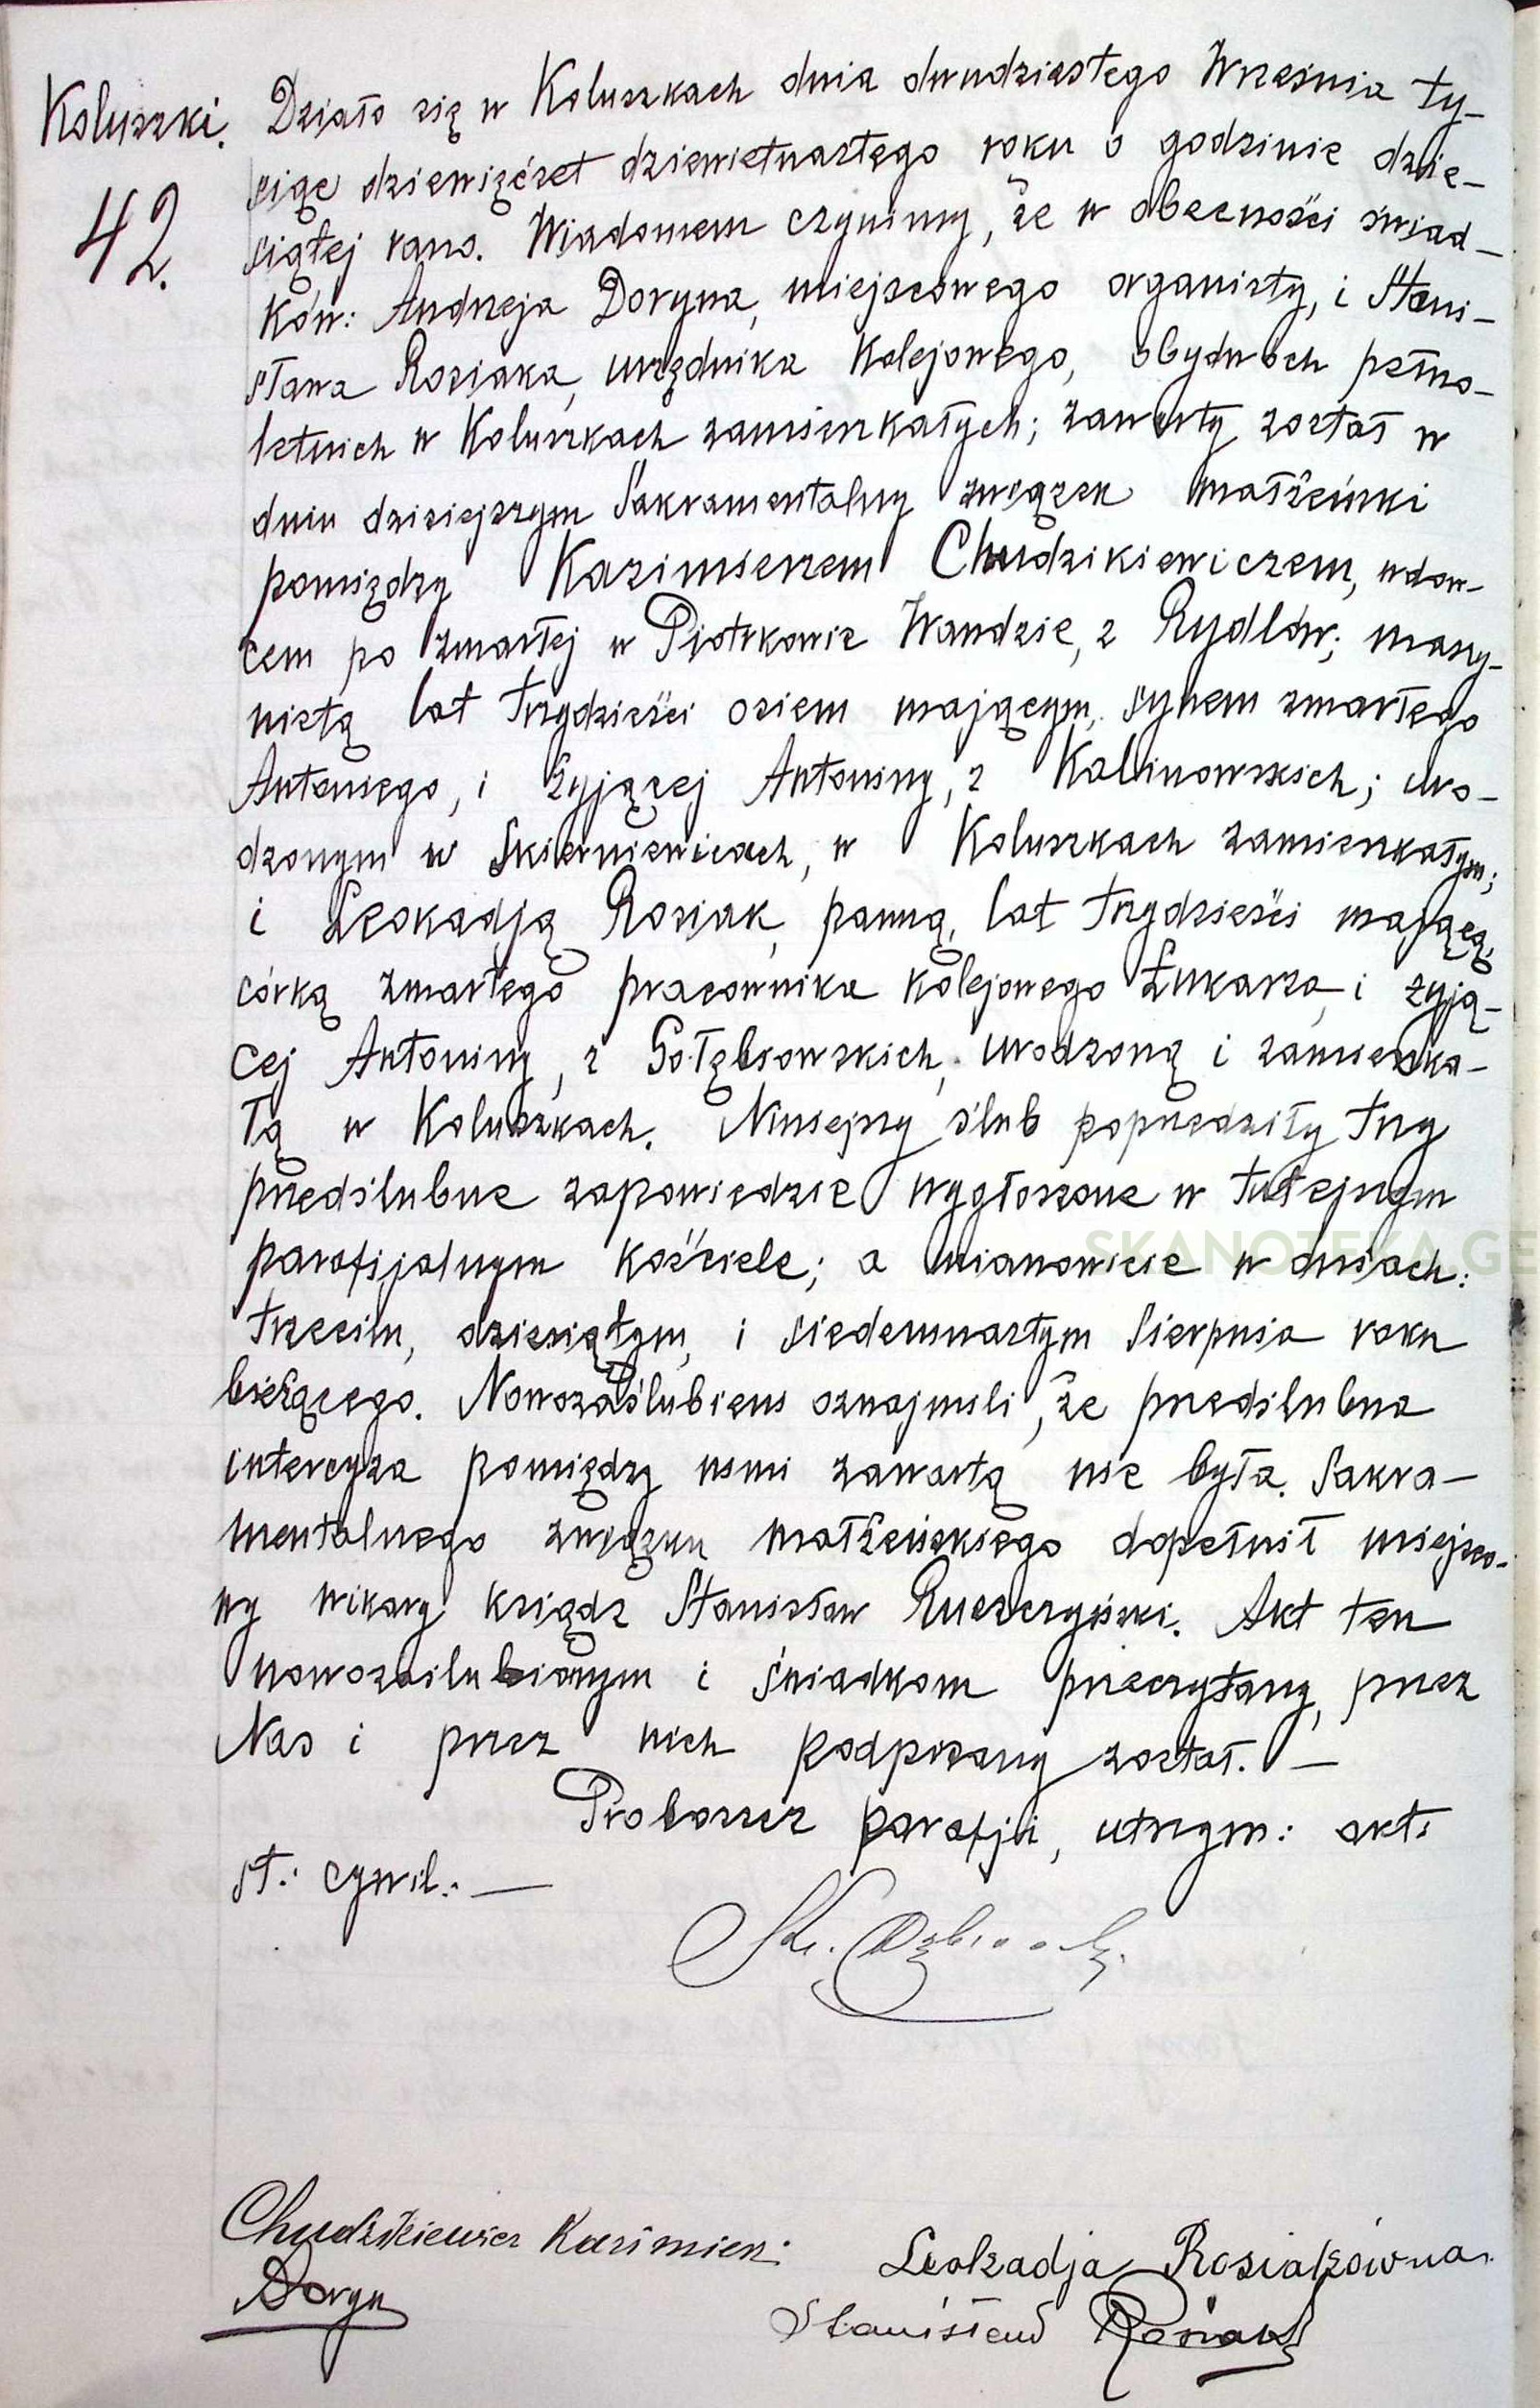 Koluszki.
42.
Działo się w Koluszkach dnia dwudziestego Września ty-
siąc dziewięćset dziewietnastego roku o godzinie dzie-
siątej rano. Wiadomem czynimy, że w obecności świad-
ków: Andrzeja Doryna, miejscowego organisty, i Stani-
sława Rosiaka, urzędnika kolejowego, obydwóch pełno-
letnich w Koluszkach zamieszkałych; zawarty został w
dniu dzisiejszym Sakramentalny związek małżeński
pomiędzy Kazimierzem Chudzikiewiczem, wdow-
cem po zmarłej w Piotrkowie Wandzie, z Rydlów; maszy-
nistą lat trzydzieści osiem mającym, synem zmarłego
Antoniego, i żyjącej Antoniny, z Kalinowskich; uro-
dzonym w Skierniewicach, w Koluszkach zamieszkałym;
i Leokadją Rosiak, panną, lat trzydzieści mającą,
córką zmarłego pracownika kolejowego Łukasza, i żyją-
cej Antoniny, z Gołębiowskich, urodzoną i zamieszka-
łą w Koluszkach. Niniejszy ślub poprzedziły trzy
przedślubne zapowiedzie wygłoszone w tutejszym
parafijalnym kościele; a mianowicie w dniach:
trzecim, dziesiątym, i siedemnastym Sierpnia roku
bieżącego. Nowozaślubieni oznajmili, że przedślubna
intercyza pomiędzy nimi zawartą nie była. Sakra-
mentalnego związku małżeńskiego dopełnił miejsco-
wy wikary ksiądz Stanisław Ruszczyński. Akt ten
nowozaślubionym i świadkom przeczytany, przez
Nas i przez nich podpisany został. —
Proboszcz parafji, utrzym: akt:
st: cywil: —
Chudzikiewicz Kazimierz
Leokadja Rosiakówna.
Doryn
Stanisław Rosiak
SKANOTEKA.GE